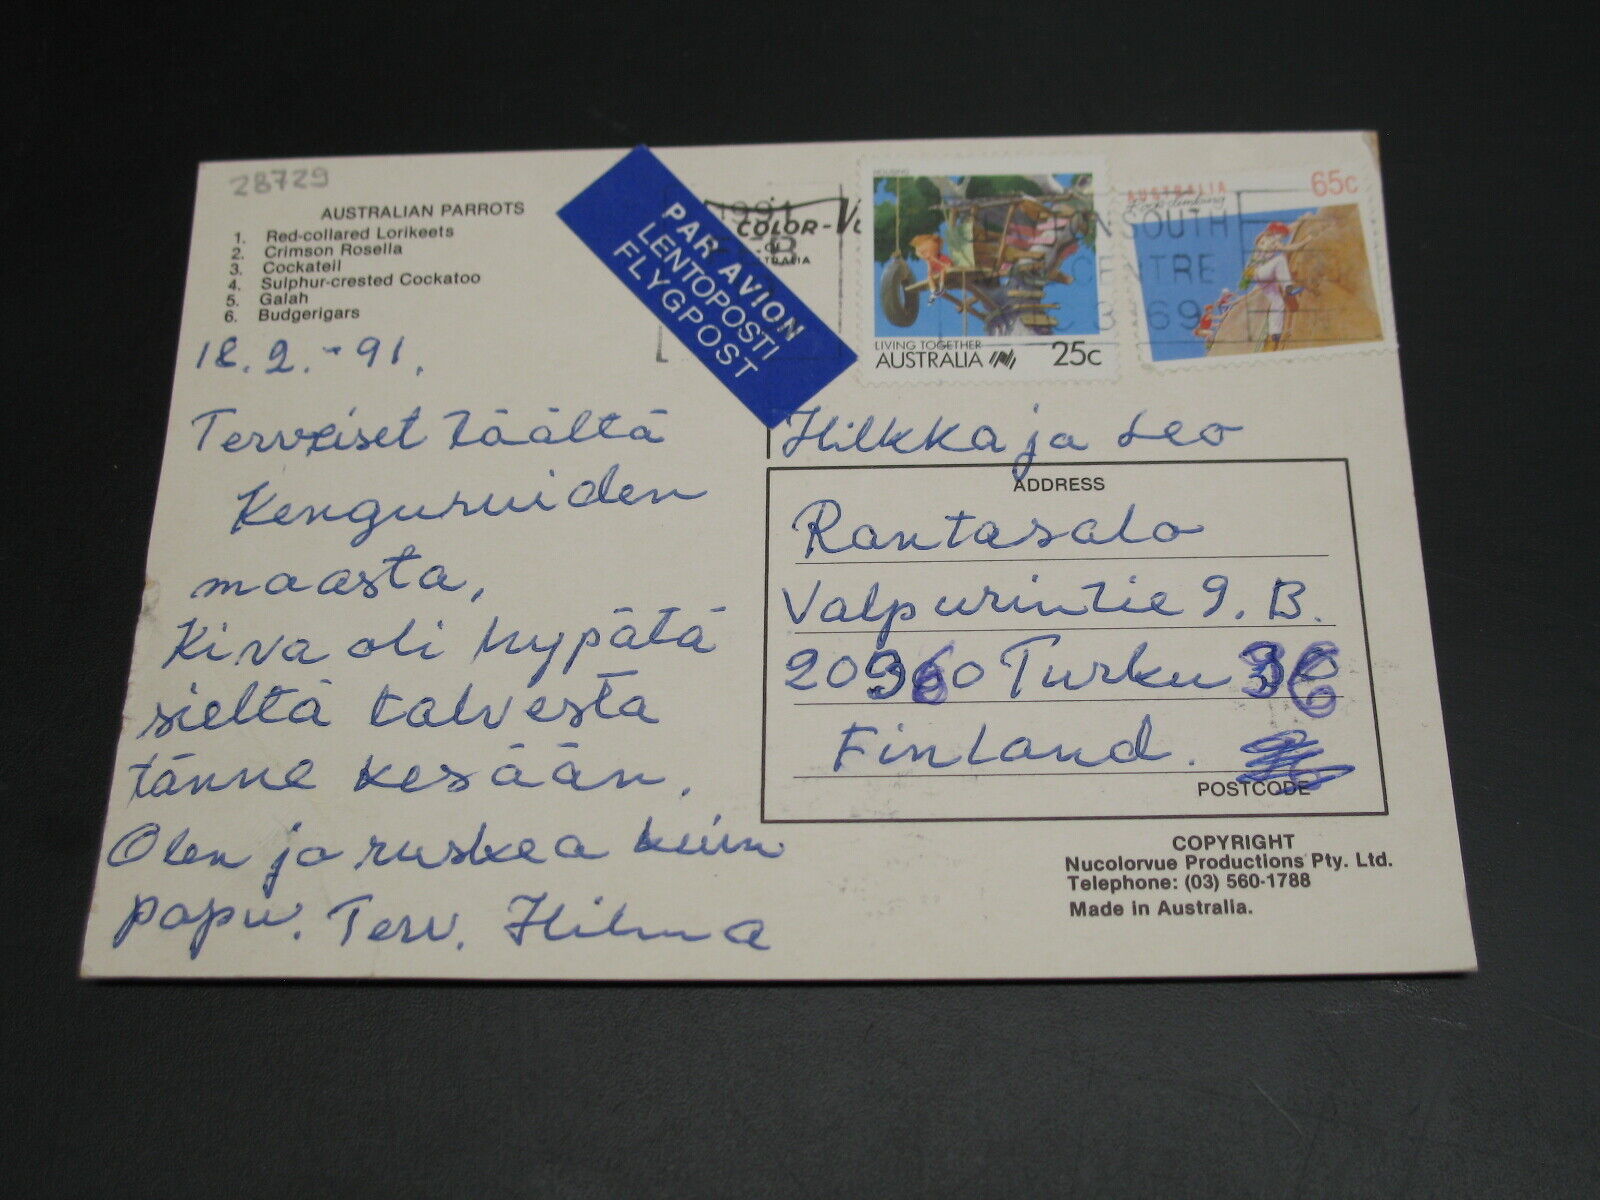 28729
AUSTRALIAN PARROTS
1. Red-collared Lorikeets
2. Crimson Rosella
3. Cockateil
4. Sulphur-crested Cockatoo
5. Galah
6. Budgerigars
18.2.-91.
Terveiset täältä
Kenguruiden
maasta,
Kiva oli hypätä
sieltä talvesta
tänne kesään.
Olen jo ruskea kuin
papu. Terv. Hilma
PAR AVION
LENTOPOSTI
FLYGPOST
1991
COLOR-
HOUSING
LIVING TOGETHER
AUSTRALIA 25c
AUSTRALIA 65c
Rock climbing
SOUTH
CENTRE
Hilkka ja Leo
ADDRESS
Rantasalo
Valpurintie 9. B.
20360 Turku 36
Finland.
POSTCODE
COPYRIGHT
Nucolorvue Productions Pty. Ltd.
Telephone: (03) 560-1788
Made in Australia.